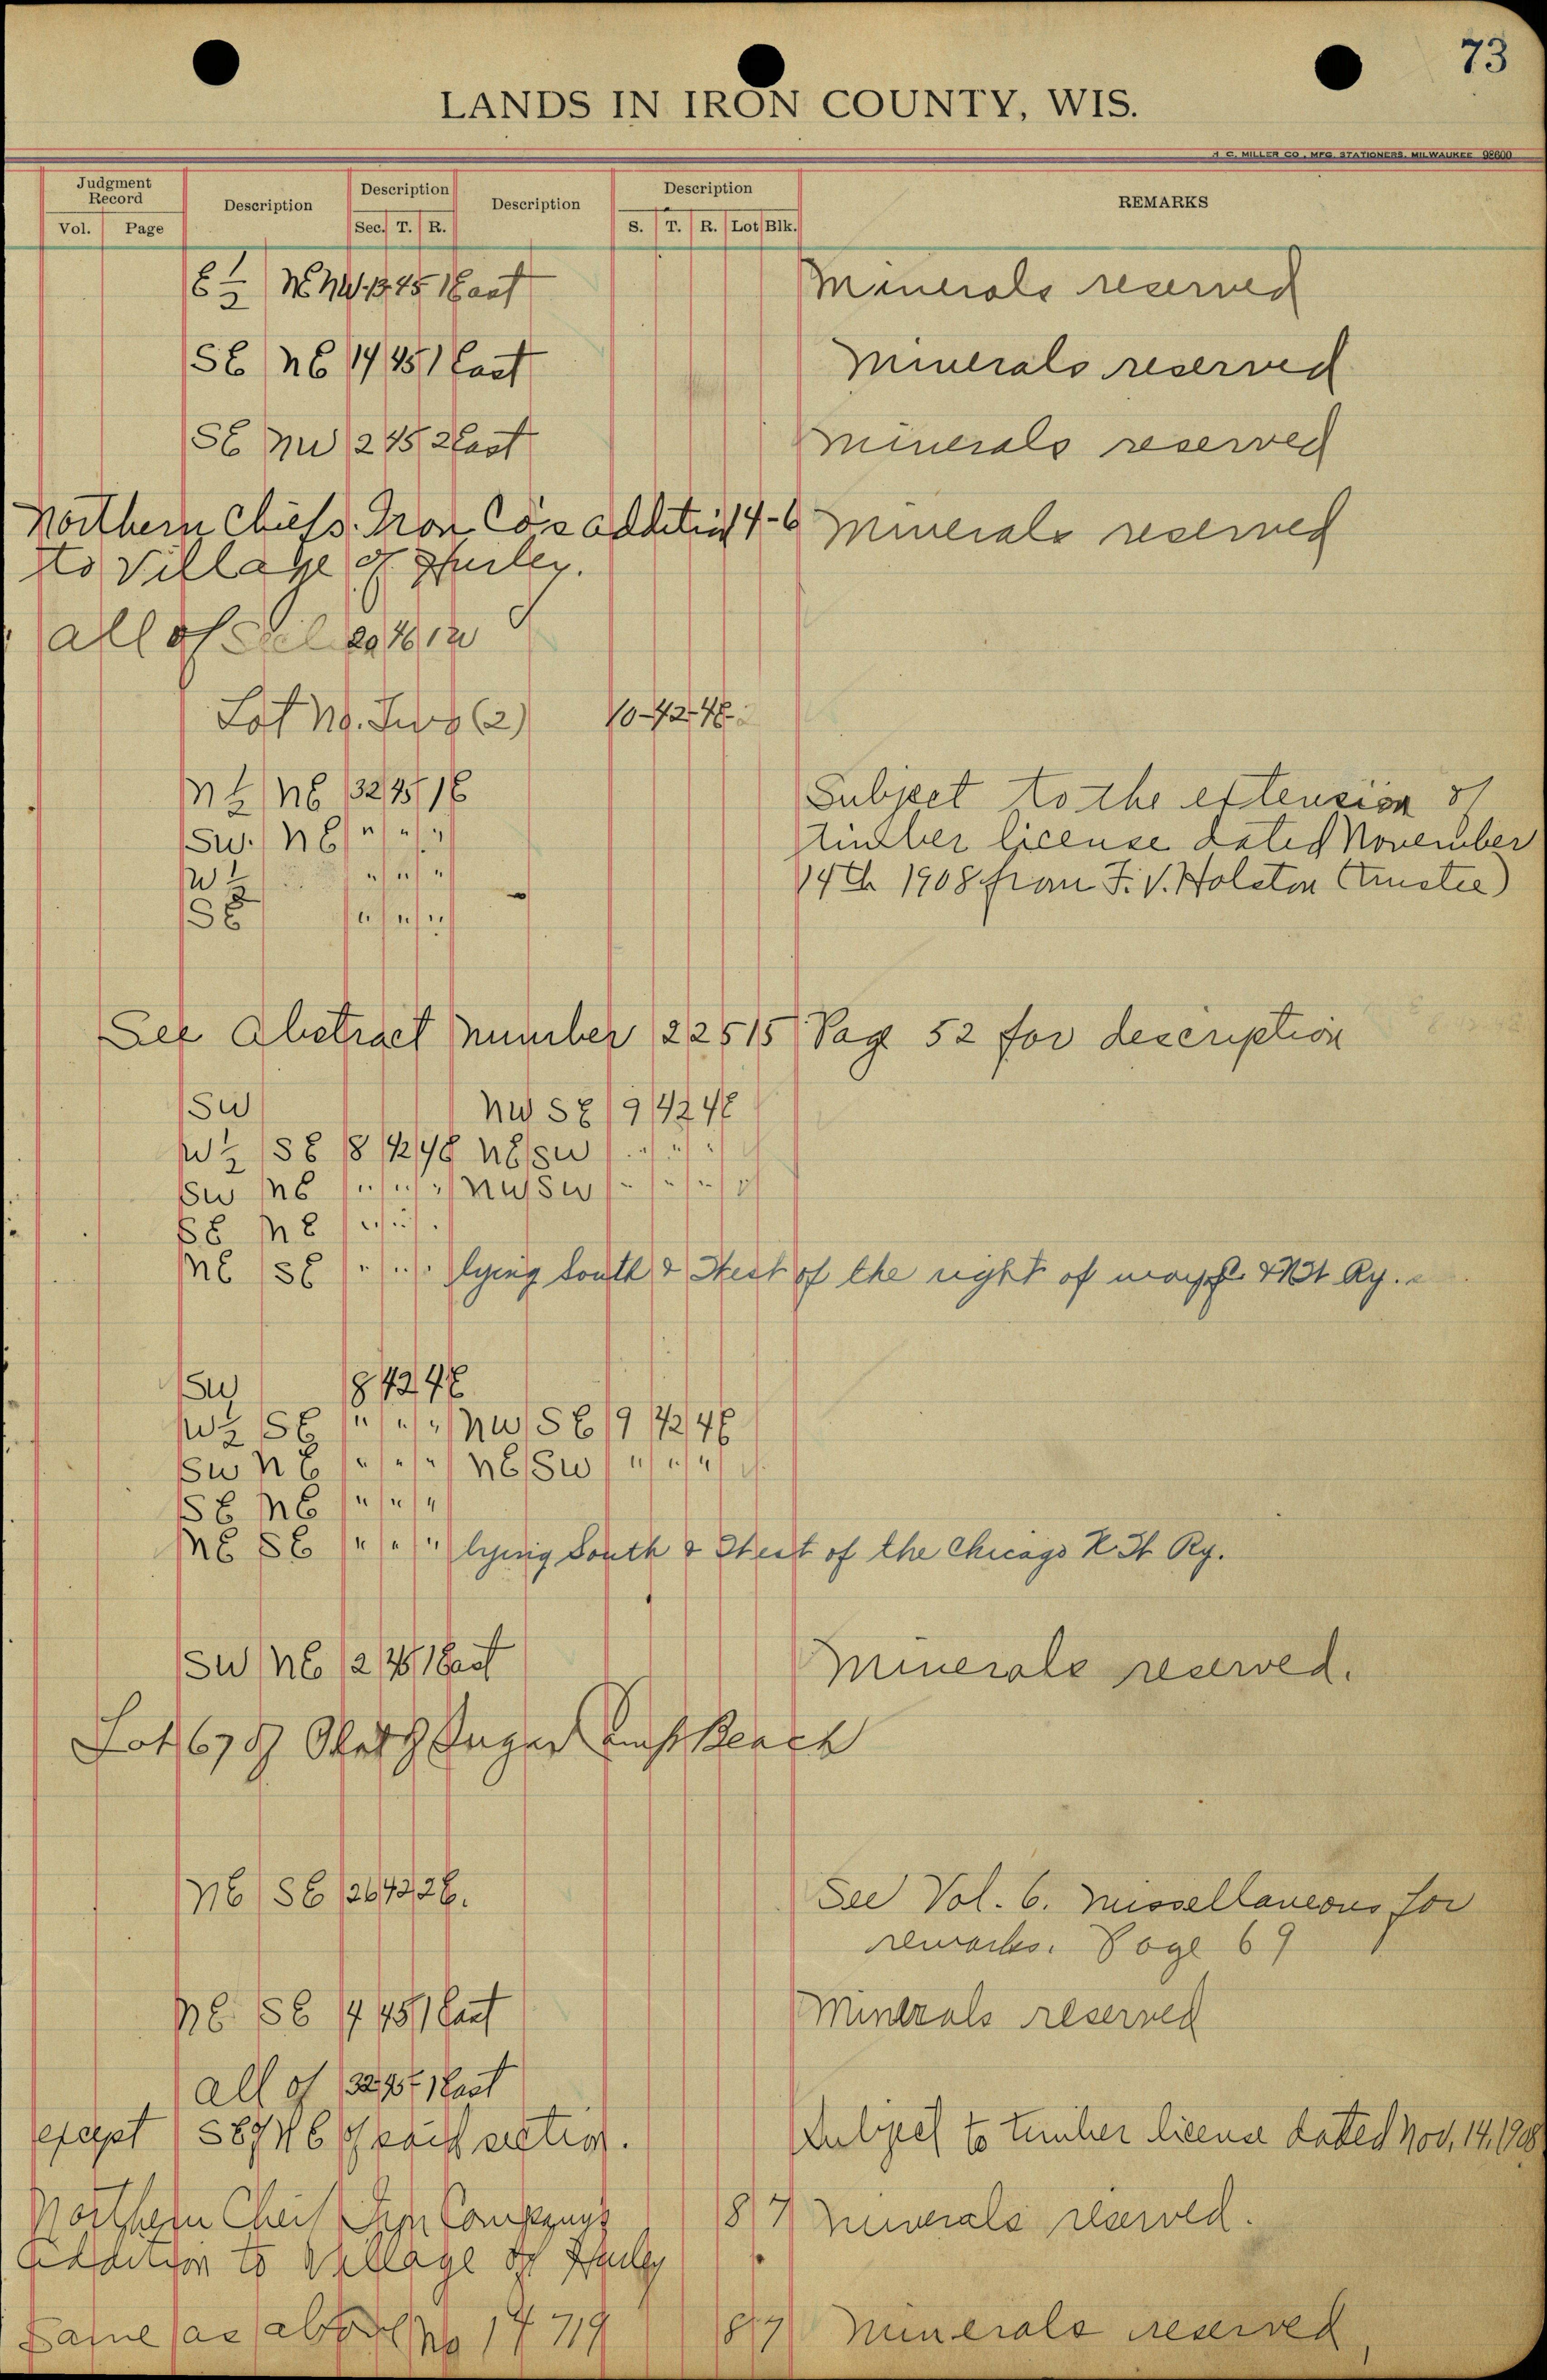 73
LANDS IN IRON COUNTY, WIS.
H. C. MILLER CO., MFG. STATIONERS, MILWAUKEE 98600
Judgment Record Description Description Description Description REMARKS
Vol. Page Sec. T. R. S. T. R. Lot Blk.
E ½ NE NW 13 45 1 East Minerals reserved
SE NE 14 45 1 East Minerals reserved
SE NW 2 45 2 East Minerals reserved
Northern Chiefs Iron Co's addition 4-6 Minerals reserved
to Village of Hurley.
all of 20 46 1
Lot No. Two (2) 10-42-4E
N ½ NE 32 45 1E Subject to the extension of
SW. NE " " " timber license dated November
W ½ " " " 14th 1908 from F. V. Holston (trustee)
SE " " "
See Abstract number 22515 Page 52 for description
SW NW SE 9 42 4E
W ½ SE 8 42 4E NE SW " " "
SW NE " " " NW SW " " "
SE NE " " "
NE SE " " " lying South & West of the right of way & Ry.
SW 8 42 4E
W ½ SE " " " NW SE 9 42 4E
SW NE " " " NE SW " " "
SE NE " " "
NE SE " " " lying South & West of the Chicago Ry.
SW NE 2 45 1 East Minerals reserved.
Lot 6 Beach
NE SE 26 42 2E. See Vol. 6. Missellaneous for
remarks. Page 69
NE SE 14 45 1 East Minerals reserved
all of 32 45 1 East
except SE of NE of said section. Subject to timber license dated Nov. 14, 1908
Northern Cheif Iron Companys 8 7 Minerals reserved.
addition to Village of Hurley
Same as above No 14719 8 7 Minerals reserved